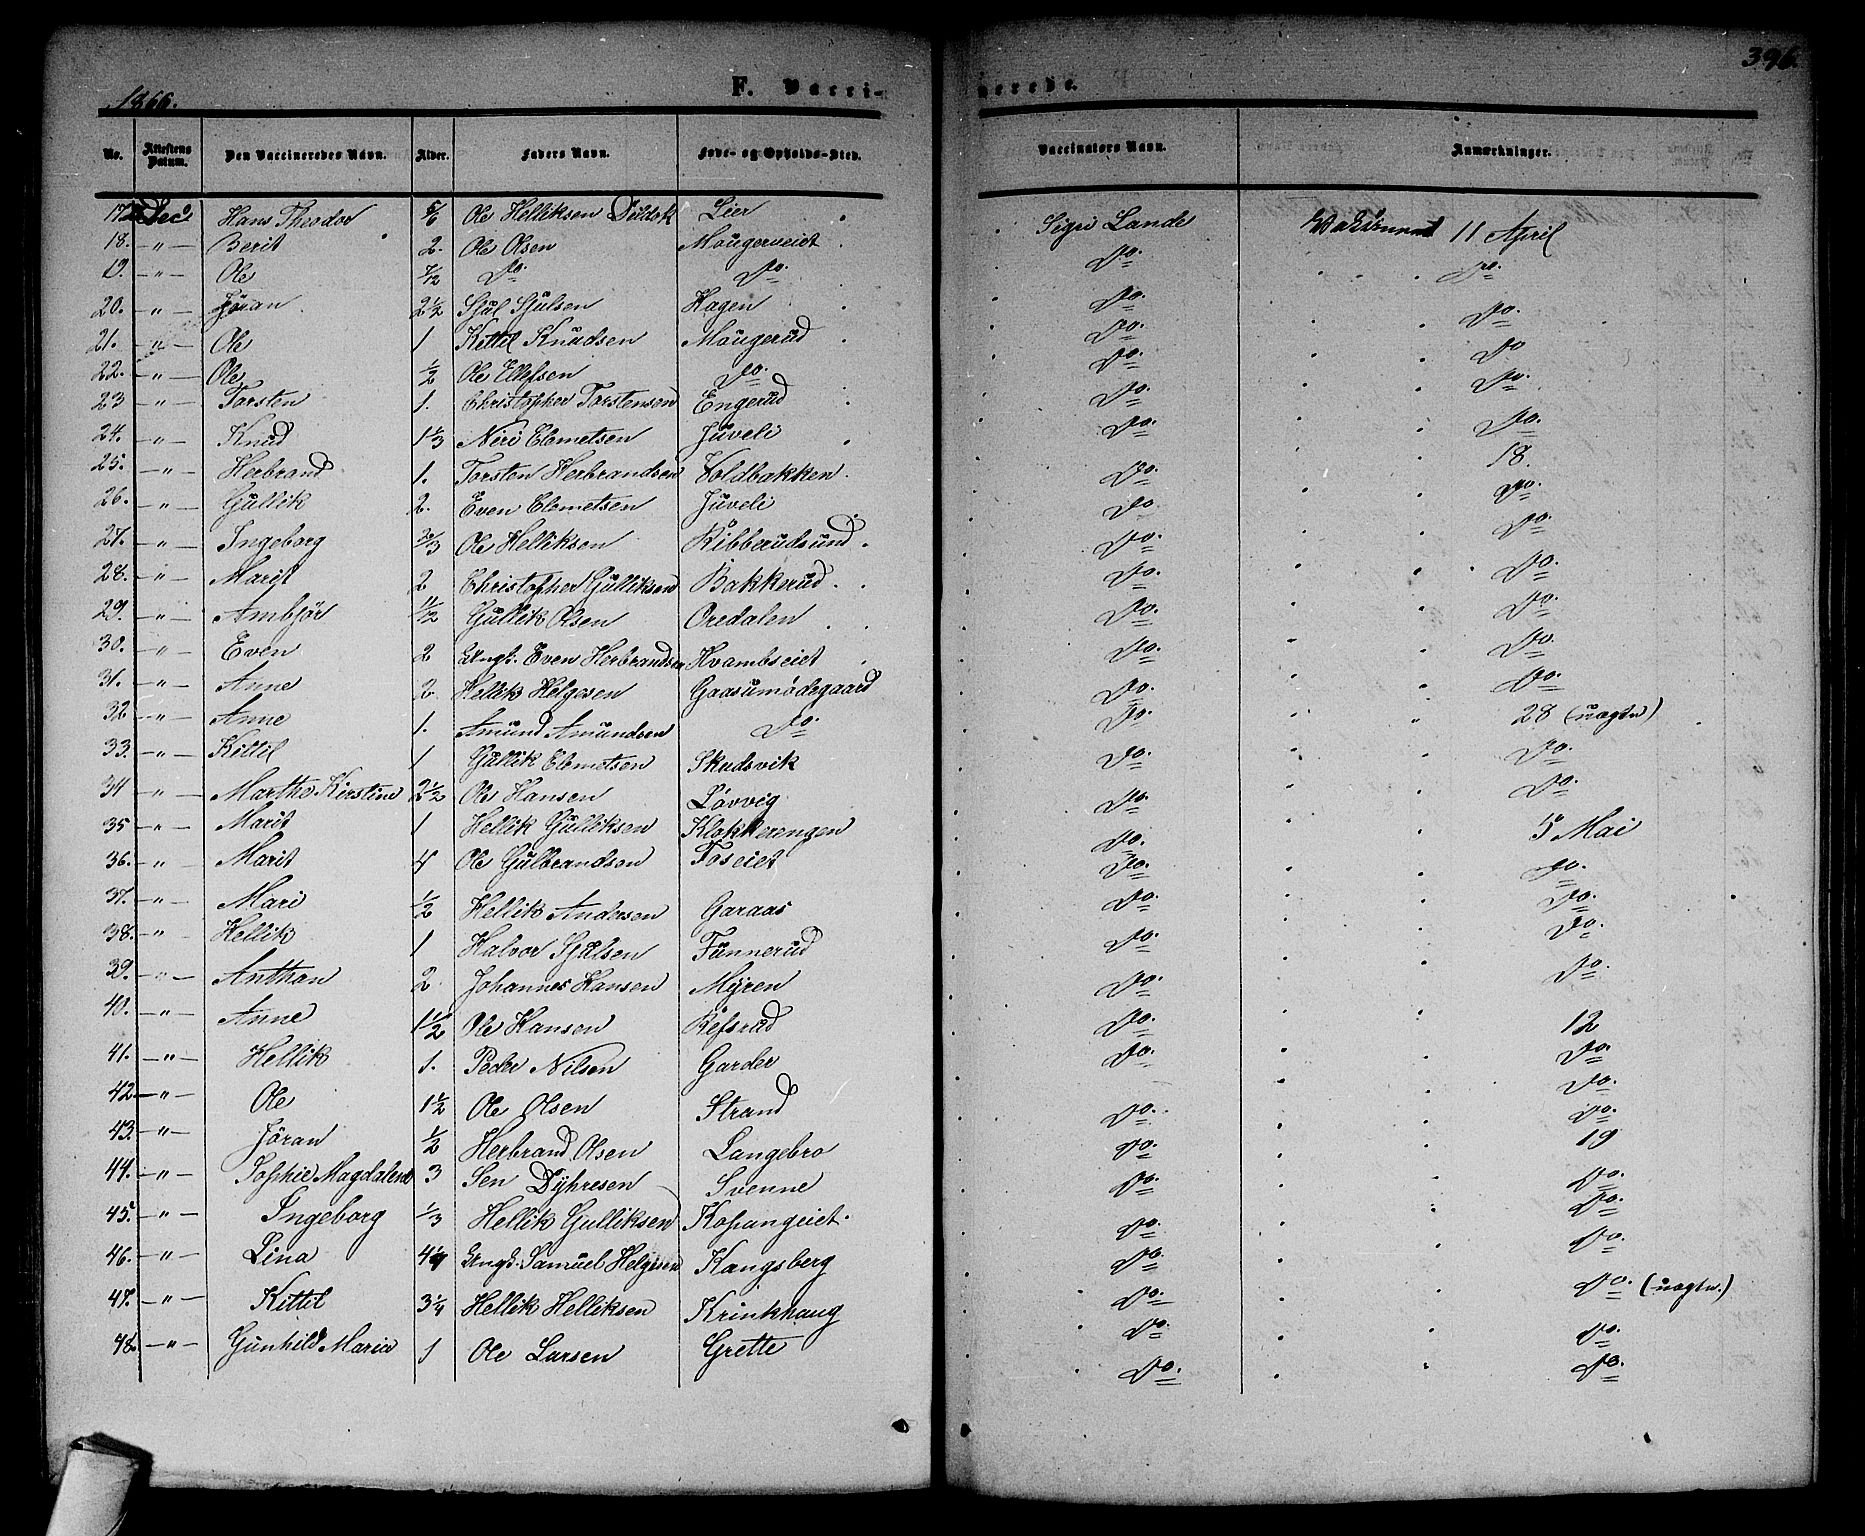 1866.
F. Vacci-
nerede.
396.
No. Attestens Datum. Den Vaccineredes Navn. Alder. Faders Navn. Føde- og Opholds-Sted. Vaccinators Navn. Anmærkninger.
17 Hans Theodor 5/6 Ole Helliksen Lier Sigri Lande 11 April
18. -"- Berit 2. Ole Olsen Mougerveiet Do.
19. -"- Ole 7/12 Do. Do. Do. Do.
20. -"- Jöran 2½ Sjul Sjulsen Hagen Do. Do.
21. -"- Ole 1 Kittil Knudsen Mougerud Do. Do
22. -"- Ole ½ Ole Ellefsen Do. Do. Do.
23 -"- Torsten 1. Christopher Torstensen Engerud Do. Do.
24. -"- Knud 1⅓ Niri Clemetsen Juveli Do. 18.
25. -"- Herbrand 1. Torsten Herbrandsen Voldbakken. Do. Do.
26. -"- Gullik 2. Even Clemetsen Juveli Do Do.
27. -"- Ingeborg ⅔ Ole Helliksen Ribberudsund. Do. Do.
28. -"- Marit 2. Christopher Gulliksen Bakkerud. Do. Do.
29. -"- Ambjör ½ Gullik Olsen Oredalen Do. Do.
30. -"- Even 2 Ungk. Even Herbrandsen Kvambseiet Do. Do.
31. -"- Anne 2. Hellik Helgesen Gaasumödegaard Do. 28 (uægte)
32 -"- Anne 1. Amund Amundsen Do. Do. Do.
33. -"- Kittil 1 Gullik Clemetsen Skudsvik Do. Do.
34 -"- Martha Kirstine 2½ Ole Hansen Lövvig Do. 5 Mai
35 -"- Marit 1 Hellik Gulliksen Klokkerengen Do. Do.
36. -"- Marit 4 Ole Gulbrandsen Foseiet Do. Do.
37. -"- Mari ½ Hellik Andersen Garaas Do. Do.
38. -"- Hellik 1 Halvor Sjulsen Funnerud Do. Do.
39. -"- Anthon 2. Johannes Hansen Myren Do. 12
40. -"- Anne 1½ Ole Hansen Refsrud Do. Do.
41. -"- Hellik 1. Peder Nilsen Garder Do. Do.
42. -"- Ole 1½ Ole Olsen Strand Do. Do.
43. -"- Jöran ½ Herbrand Olsen Langebro Do. 19
44. -"- Sophie Magdalene 3 Sen Dyhresen Svenne Do. Do.
45. -"- Ingeborg ⅓ Hellik Gulliksen Kopangeiet. Do. Do.
46. -"- Lina Ungk. Samuel Helgesen Kongsberg Do. Do. (uægte.)
47. -"- Kittil 3¼ Hellik Helliksen Krinkhaug Do. Do.
48. -"- Gunhild Maria 1 Ole Larsen Grette Do. Do.